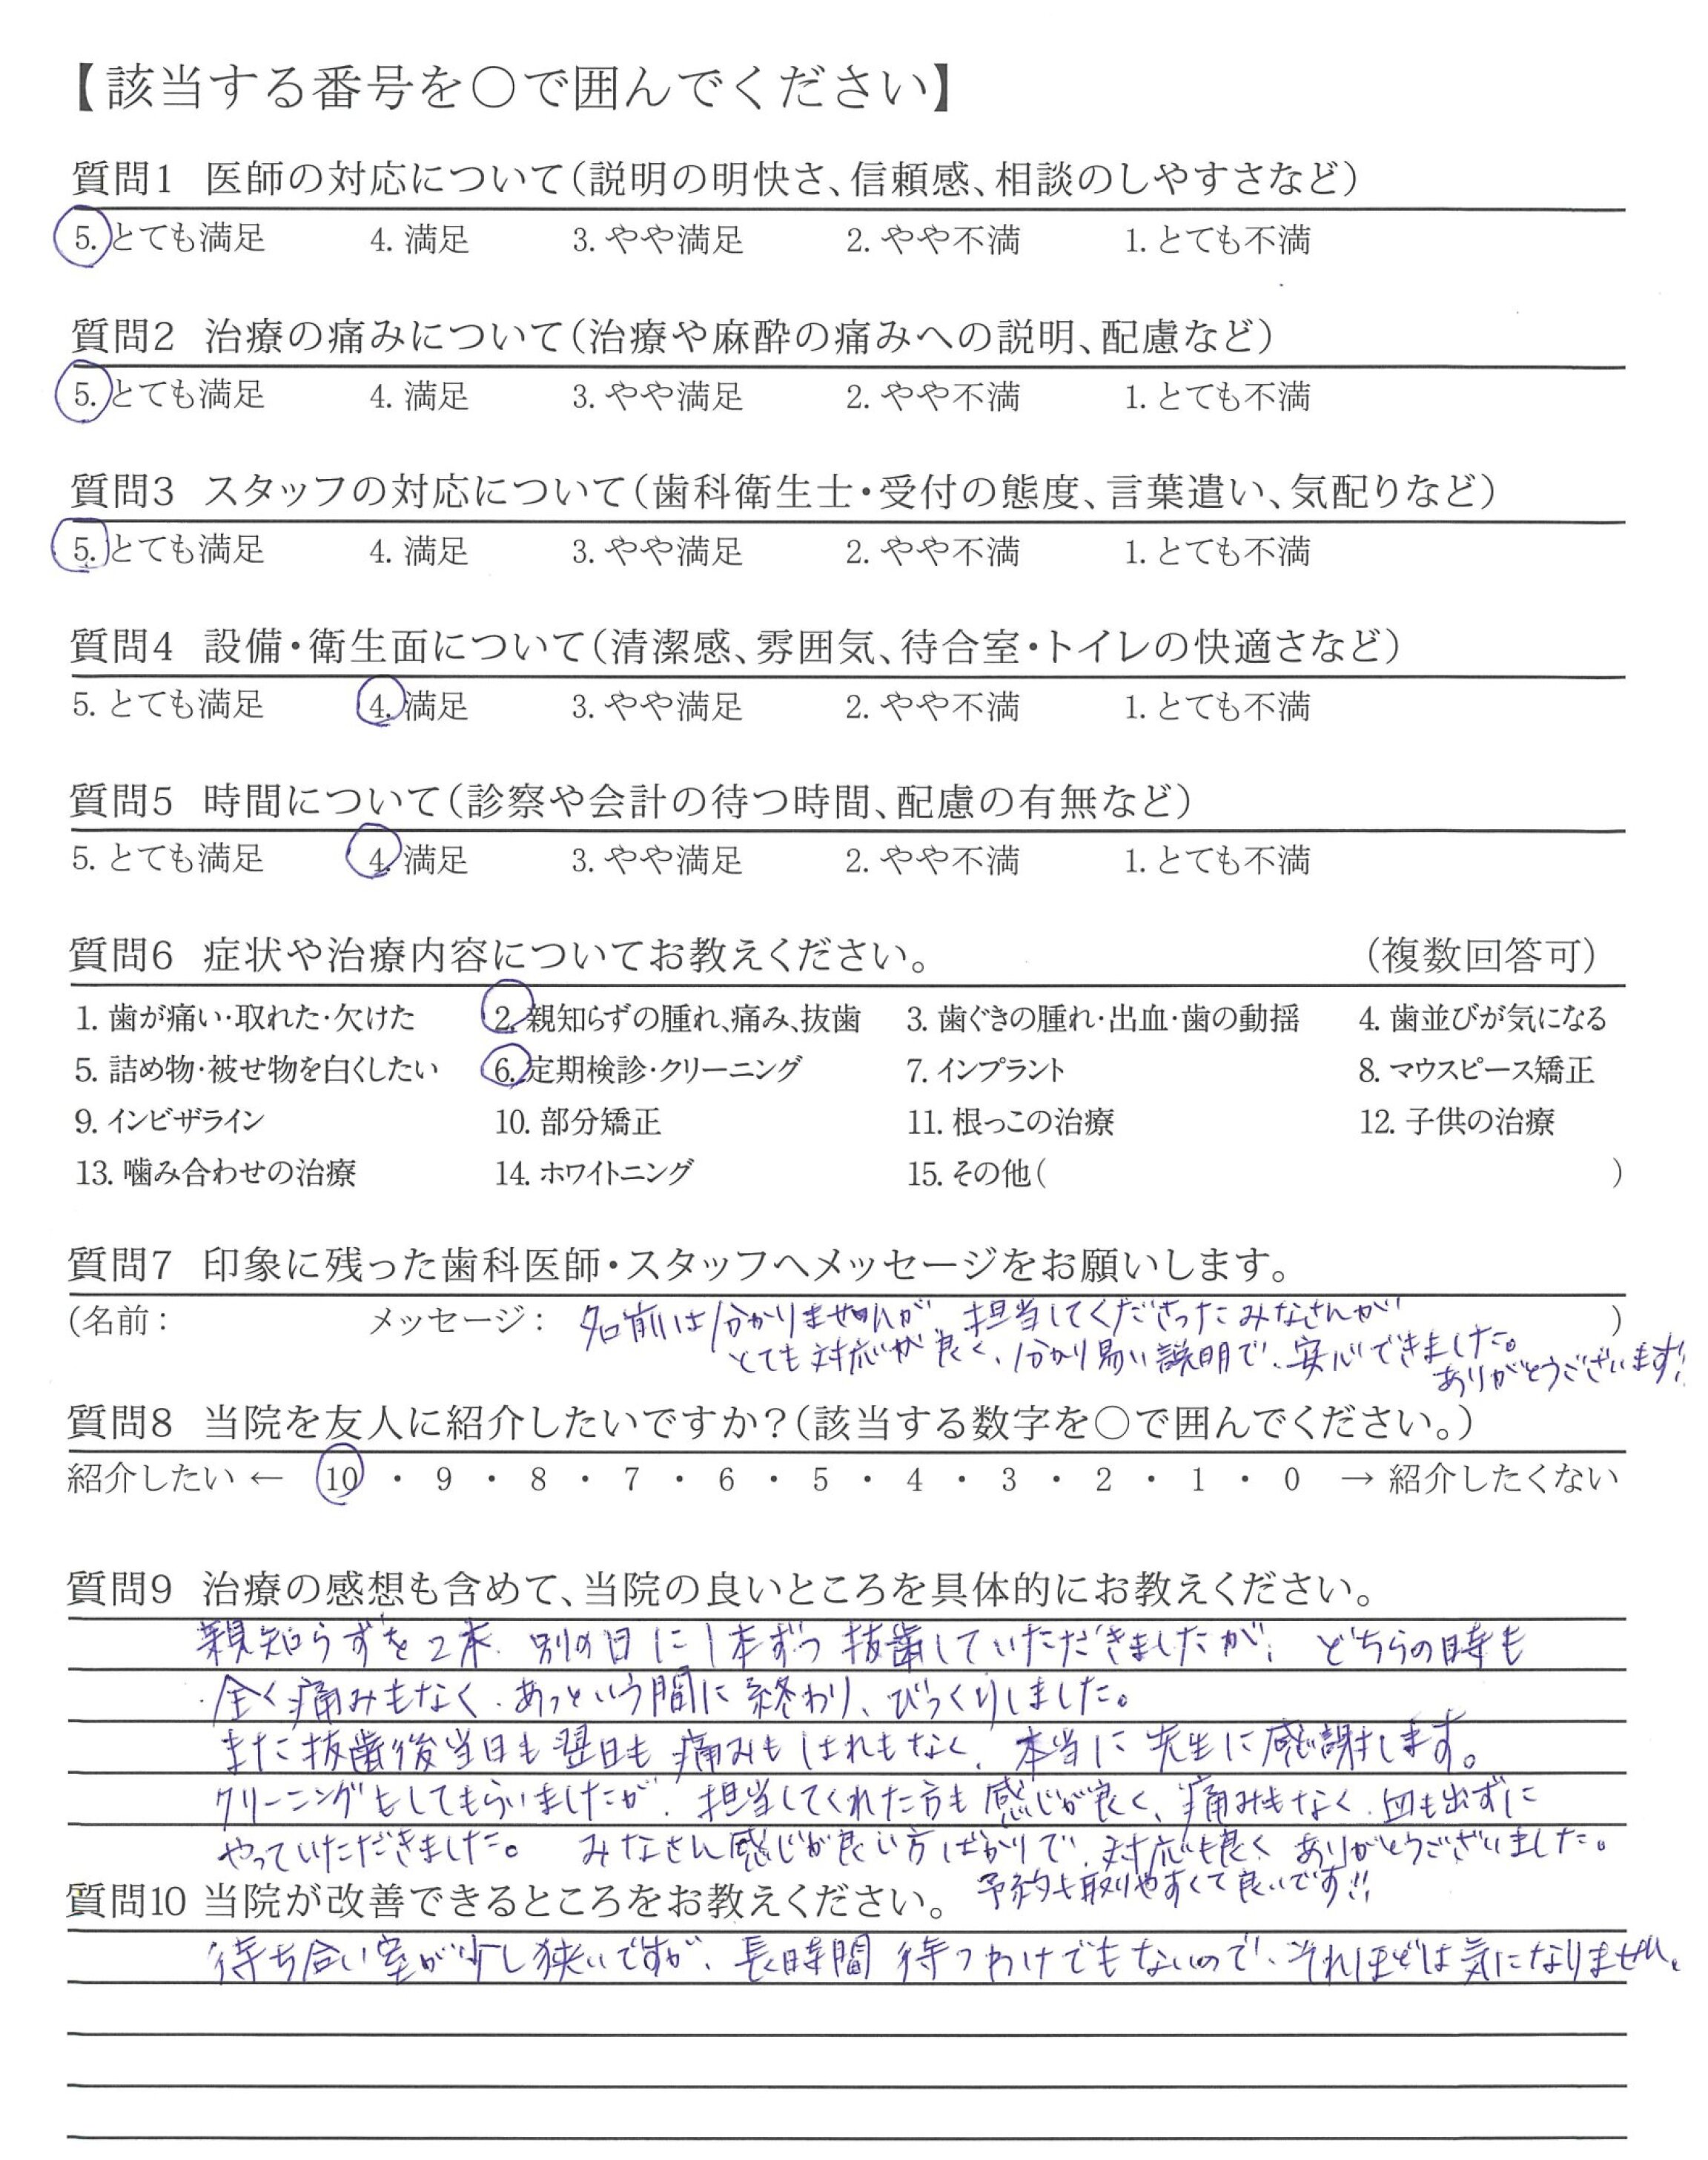 【該当する番号を〇で囲んでください】
質問1 医師の対応について(説明の明快さ、信頼感、相談のしやすさなど)
5. とても満足 4. 満足 3. やや満足 2. やや不満 1. とても不満
質問2 治療の痛みについて(治療や麻酔の痛みへの説明、配慮など)
5. とても満足 4. 満足 3. やや満足 2. やや不満 1. とても不満
質問3 スタッフの対応について(歯科衛生士・受付の態度、言葉遣い、気配りなど)
5. とても満足 4. 満足 3. やや満足 2. やや不満 1. とても不満
質問4 設備・衛生面について(清潔感、雰囲気、待合室・トイレの快適さなど)
5. とても満足 4. 満足 3. やや満足 2. やや不満 1. とても不満
質問5 時間について(診察や会計の待つ時間、配慮の有無など)
5. とても満足 4. 満足 3. やや満足 2. やや不満 1. とても不満
質問6 症状や治療内容についてお教えください。 (複数回答可)
1. 歯が痛い・取れた・欠けた 2. 親知らずの腫れ、痛み、抜歯 3. 歯ぐきの腫れ・出血・歯の動揺 4. 歯並びが気になる
5. 詰め物・被せ物を白くしたい 6. 定期検診・クリーニング 7. インプラント 8. マウスピース矯正
9. インビザライン 10. 部分矯正 11. 根っこの治療 12. 子供の治療
13. 噛み合わせの治療 14. ホワイトニング 15. その他( )
質問7 印象に残った歯科医師・スタッフへメッセージをお願いします。
(名前: メッセージ: 名前は分かりませんが、担当してくださったみなさんが )
とても対応が良く、分かり易い説明で、安心できました。
ありがとうございます!
質問8 当院を友人に紹介したいですか?(該当する数字を〇で囲んでください。)
紹介したい ← 10 ・ 9 ・ 8 ・ 7 ・ 6 ・ 5 ・ 4 ・ 3 ・ 2 ・ 1 ・ 0 → 紹介したくない
質問9 治療の感想も含めて、当院の良いところを具体的にお教えください。
親知らずを2本、別の日に1本ずつ抜歯していただきましたが、どちらの時も
全く痛みもなく、あっという間に終わり、びっくりしました。
また抜歯後当日も翌日も痛みもはれもなく、本当に先生に感謝します。
クリーニングもしてもらいましたが、担当してくれた方も感じが良く、痛みもなく、血も出ずに
やっていただきました。 みなさん感じが良い方ばかりで、対応も良く ありがとうございました。
予約も取りやすくて良いです!!
質問10 当院が改善できるところをお教えください。
待ち合い室が少し狭いですが、長時間待つわけでもないので、それほどは気になりません。